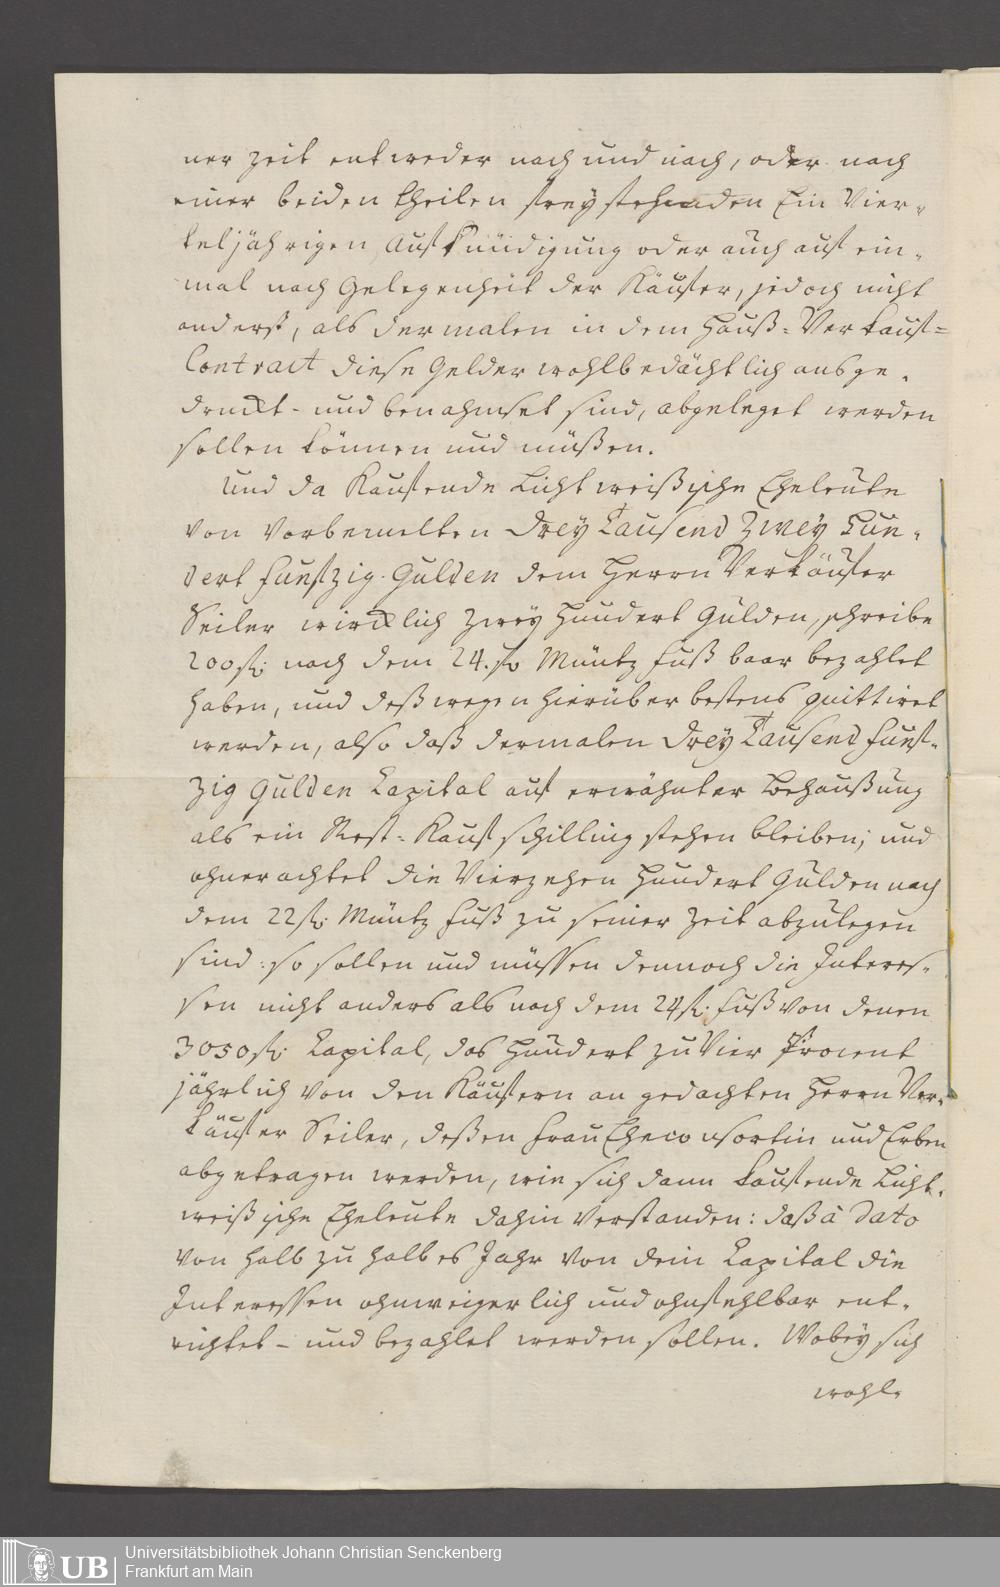 ner Zeit entweder nach und nach, oder nach
einer beiden Theilen freystehenden Ein Vier-
teljährigen Aufkündigung oder auch auf ein-
mal nach Gelegenheit der Käufer, jedoch nicht
anderst, als dermalen in dem Hauß-Verkauf-
Contract diese Gelder wohlbedächtlich ausge-
druckt- und benahmset sind, abgeleget werden
sollen können und müßen.
Und da Kaufende Lichtweißische Eheleute
von vorbemelten Drey Tausend Zwey Hun-
dert Funfzig Gulden dem Herrn Verkäufer
Seiler wircklich Zwey Hundert Gulden, schreibe
200 fl. nach dem 24. fl. Müntz Fuß baar bezahlet
haben, und deßwegen hierüber bestens quittiret
werden, also daß dermalen Drey Tausend Funf-
zig Gulden Capital auf erwähnter Behaußung
als ein Rest-Kaufschilling stehen bleiben; und
ohnerachtet die Vierzehen Hundert Gulden nach
dem 22 fl. Müntz Fuß zu seiner Zeit abzulegen
sind: so sollen und müssen dennoch die Interes-
sen nicht anders als nach dem 24 fl. Fuß von denen
3050 fl. Capital, das Hundert zu Vier Procent
jährlich von den Käufern an gedachten Herrn Ver-
käufer Seiler, deßen Frau Eheconsortin und Erben
abgetragen werden, wie sich dann kaufende Licht-
weißische Eheleute dahin verstanden: daß à dato
von halb zu halbes Jahr von dem Capital die
Interessen ohnweigerlich und ohnfehlbar ent-
richtet- und bezahlet werden sollen. Wobey sich
wohl-
UB
Universitätsbibliothek Johann Christian Senckenberg
Frankfurt am Main